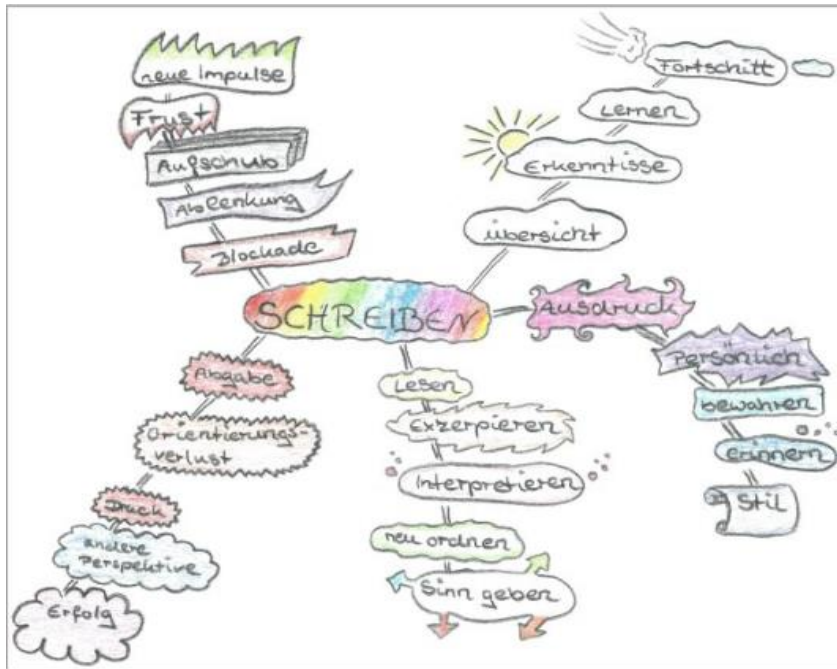 neue Impulse
Frust
Aufschub
Ablenkung
Blockade
Fortschitt
Lernen
Erkenntisse
übersicht
SCHREIBEN
Ausdruck
Persönlich
bewahren
erinnern
Stil
Lesen
Exzerpieren
Interpretieren
neu ordnen
Sinn geben
Abgabe
Orientierungs-
verlust
Druck
andere
Perspektive
Erfolg